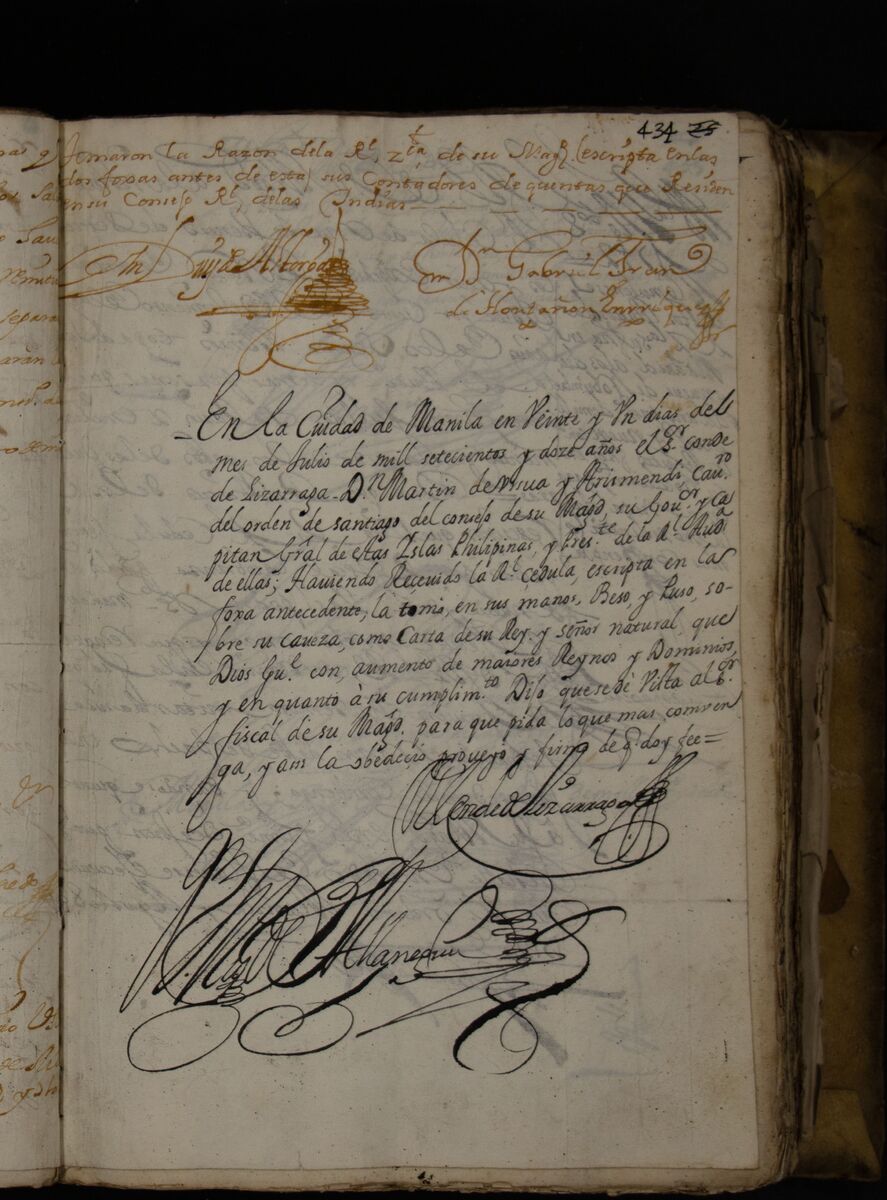 434 25
tomaron la Razon dela Rl, zta, de su Magd. (escripta en las
dos foxas antes de esta) sus Contadores de quentas que Residen
en su Consejo Rl, delas Indias
Dn Gabriel Fran
de Hontañon Enrriquez
En la Ciudad de Manila en Veinte y Un dias del
mes de Julio de mill setecientos y doze años el Sor. conde
de Lizarraga Dn. Martin de Ursua y Arismendi, Cauro.
del orden de santiago del consejo de su Magd, su Gouor. y Ca
pitan Gral de estas Yslas Philipinas, y Preste. de la Rl. Auda
de ellas; Hauiendo Receuido la Rl. cedula, escripta en la
foxa antecedente, la tomó, en sus manos, Beso, y Puso, so-
bre su caueza, como Carta de su Rey. y señor natural, que
Dios Gue. con, aumento de maiores Reynos y Dominios,
y en quanto à su cumplimto. Dijo que se dé Vista al Sor.
fiscal de su Magd. para que pida lo que mas comben
ga, y assi la obedecio proueyo y firmo de q. doy fee=
El Conde de Lizarraga